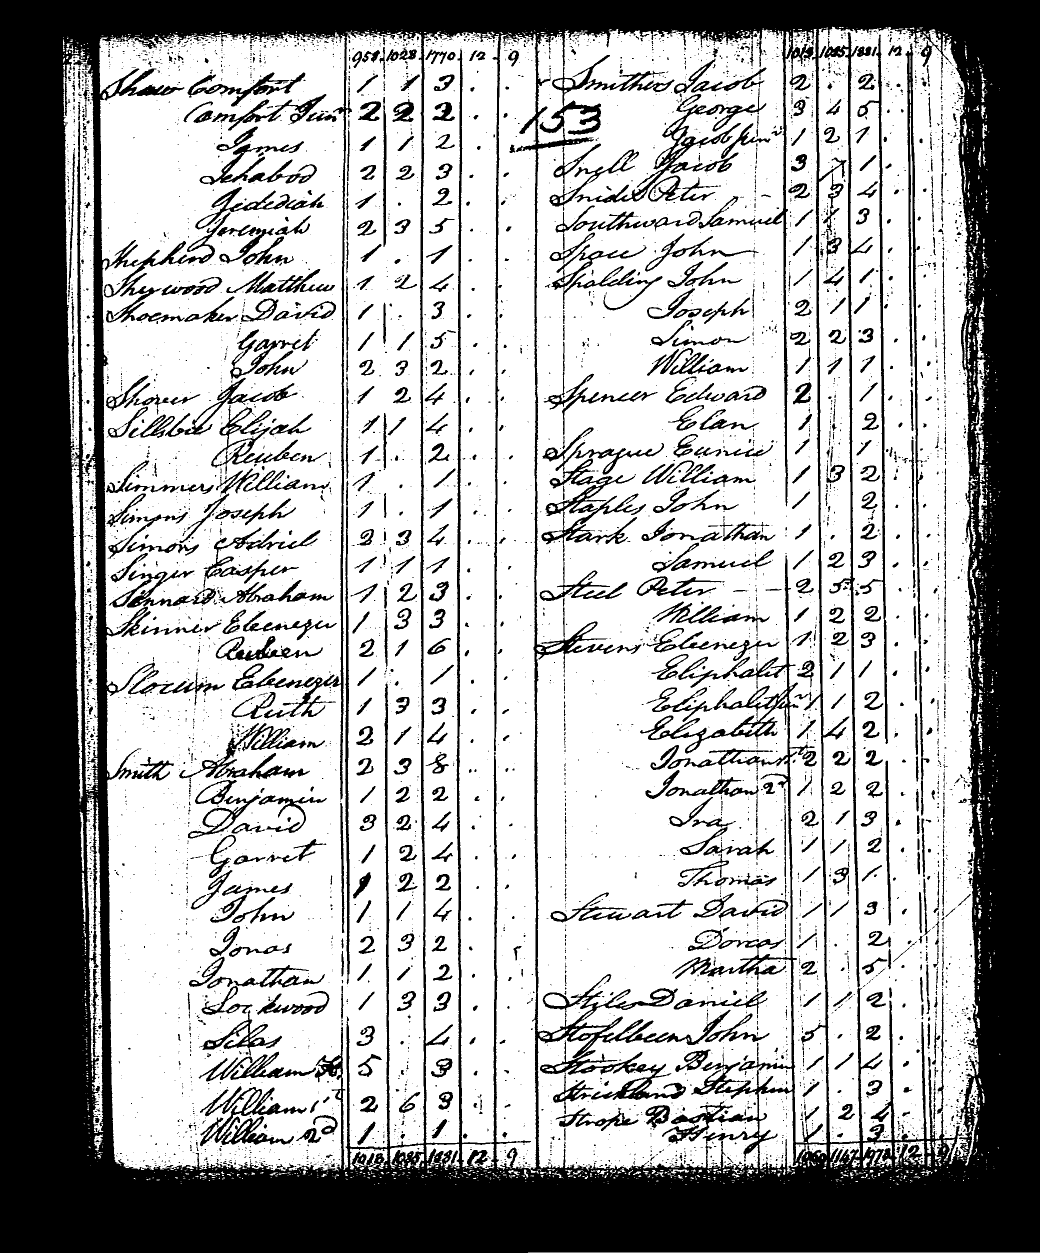 958. 1028. 1770. 12 . 9
Shaw Comfort 1 1 3 . .
Comfort Junr 2 2 2 . .
James 1 1 2 . .
Ichabod 2 2 3 . .
Jedediah 1 . 2 . .
Jeremiah 2 3 5 . .
Shepherd John 1 . 1 . .
Sherwood Matthew 1 2 4 . .
Shoemaker David 1 . 3 . .
Garret 1 1 5 . .
John 2 3 2 . .
Shover Jacob 1 2 4 . .
Sillsbie Elijah 1 1 4 . .
Reuben 1 . 2 . .
Simmers William 1 . 1 . .
Simons Joseph 1 . 1 . .
Simons Adriel 2 3 4 . .
Singer Casper 1 1 1 . .
Abraham 1 2 3 . .
Skinner Ebenezer 1 3 3 . .
Reuben 2 1 6 . .
Slocum Ebenezer 1 . 1 . .
Ruth 1 3 3 . .
William 2 1 4 . .
Smith Abraham 2 3 8 . .
Benjamin 1 2 2 . .
David 3 2 4 . .
Garret 1 2 4 . .
James 1 2 2 . .
John 1 1 4 . .
Jonas 2 3 2 . .
Jonathan 1 1 2 . .
Lockwood 1 3 3 . .
Silas 3 . 4 . .
William H. 5 . 3 . .
William 1st 2 6 3 . .
William 2d 1 . 1 . .
1013. 1085. 1881. 12 - 9
153
1013. 1085. 1881. 12 . 9
Smithers Jacob 2 . 2 . .
George 3 4 5 . .
Jacob junr 1 2 1 . .
Snell Jacob 3 7 1 . .
Snider Peter - 2 3 4 . .
Southward Samuel 1 1 3 . .
Space John 1 3 4 . .
Spalding John 1 4 1 . .
Joseph 2 1 1 . .
Simon 2 2 3 . .
William 1 1 1 . .
Spencer Edward 2 . 1 . .
Elan 1 . 2 . .
Sprague Eunice 1 1 . .
Stage William 1 3 2 . .
Staples John 1 2 . .
Stark Jonathan 1 . 2 . .
Samuel 1 2 3 . .
Steel Peter - - 2 5 5 . .
William 1 2 2 . .
Stevens Ebenezer 1 2 3 . .
Eliphalit 2 1 1 . .
Eliphalit junr 1 1 2 . .
Elizabeth 1 4 2 . .
Jonathan 1st 2 2 2 . .
Jonathan 2d 1 2 2 . .
Ira 2 1 3 .
Sarah 1 1 2 . .
Thomas 1 3 1 . .
Stewart David 1 1 3 . .
Dorcas 1 . 2 . .
Martha 2 . 5 . .
Stiles Daniel 1 1 2 . .
Stofelbeen John 5 . 2 . .
Stookey Benjamin 1 1 4 . .
Strickland Stephen 1 . 3 . .
Strope Bastian 1 2 4 . .
Henry 1 . 3 .
1060 1147 1978 12 - 9